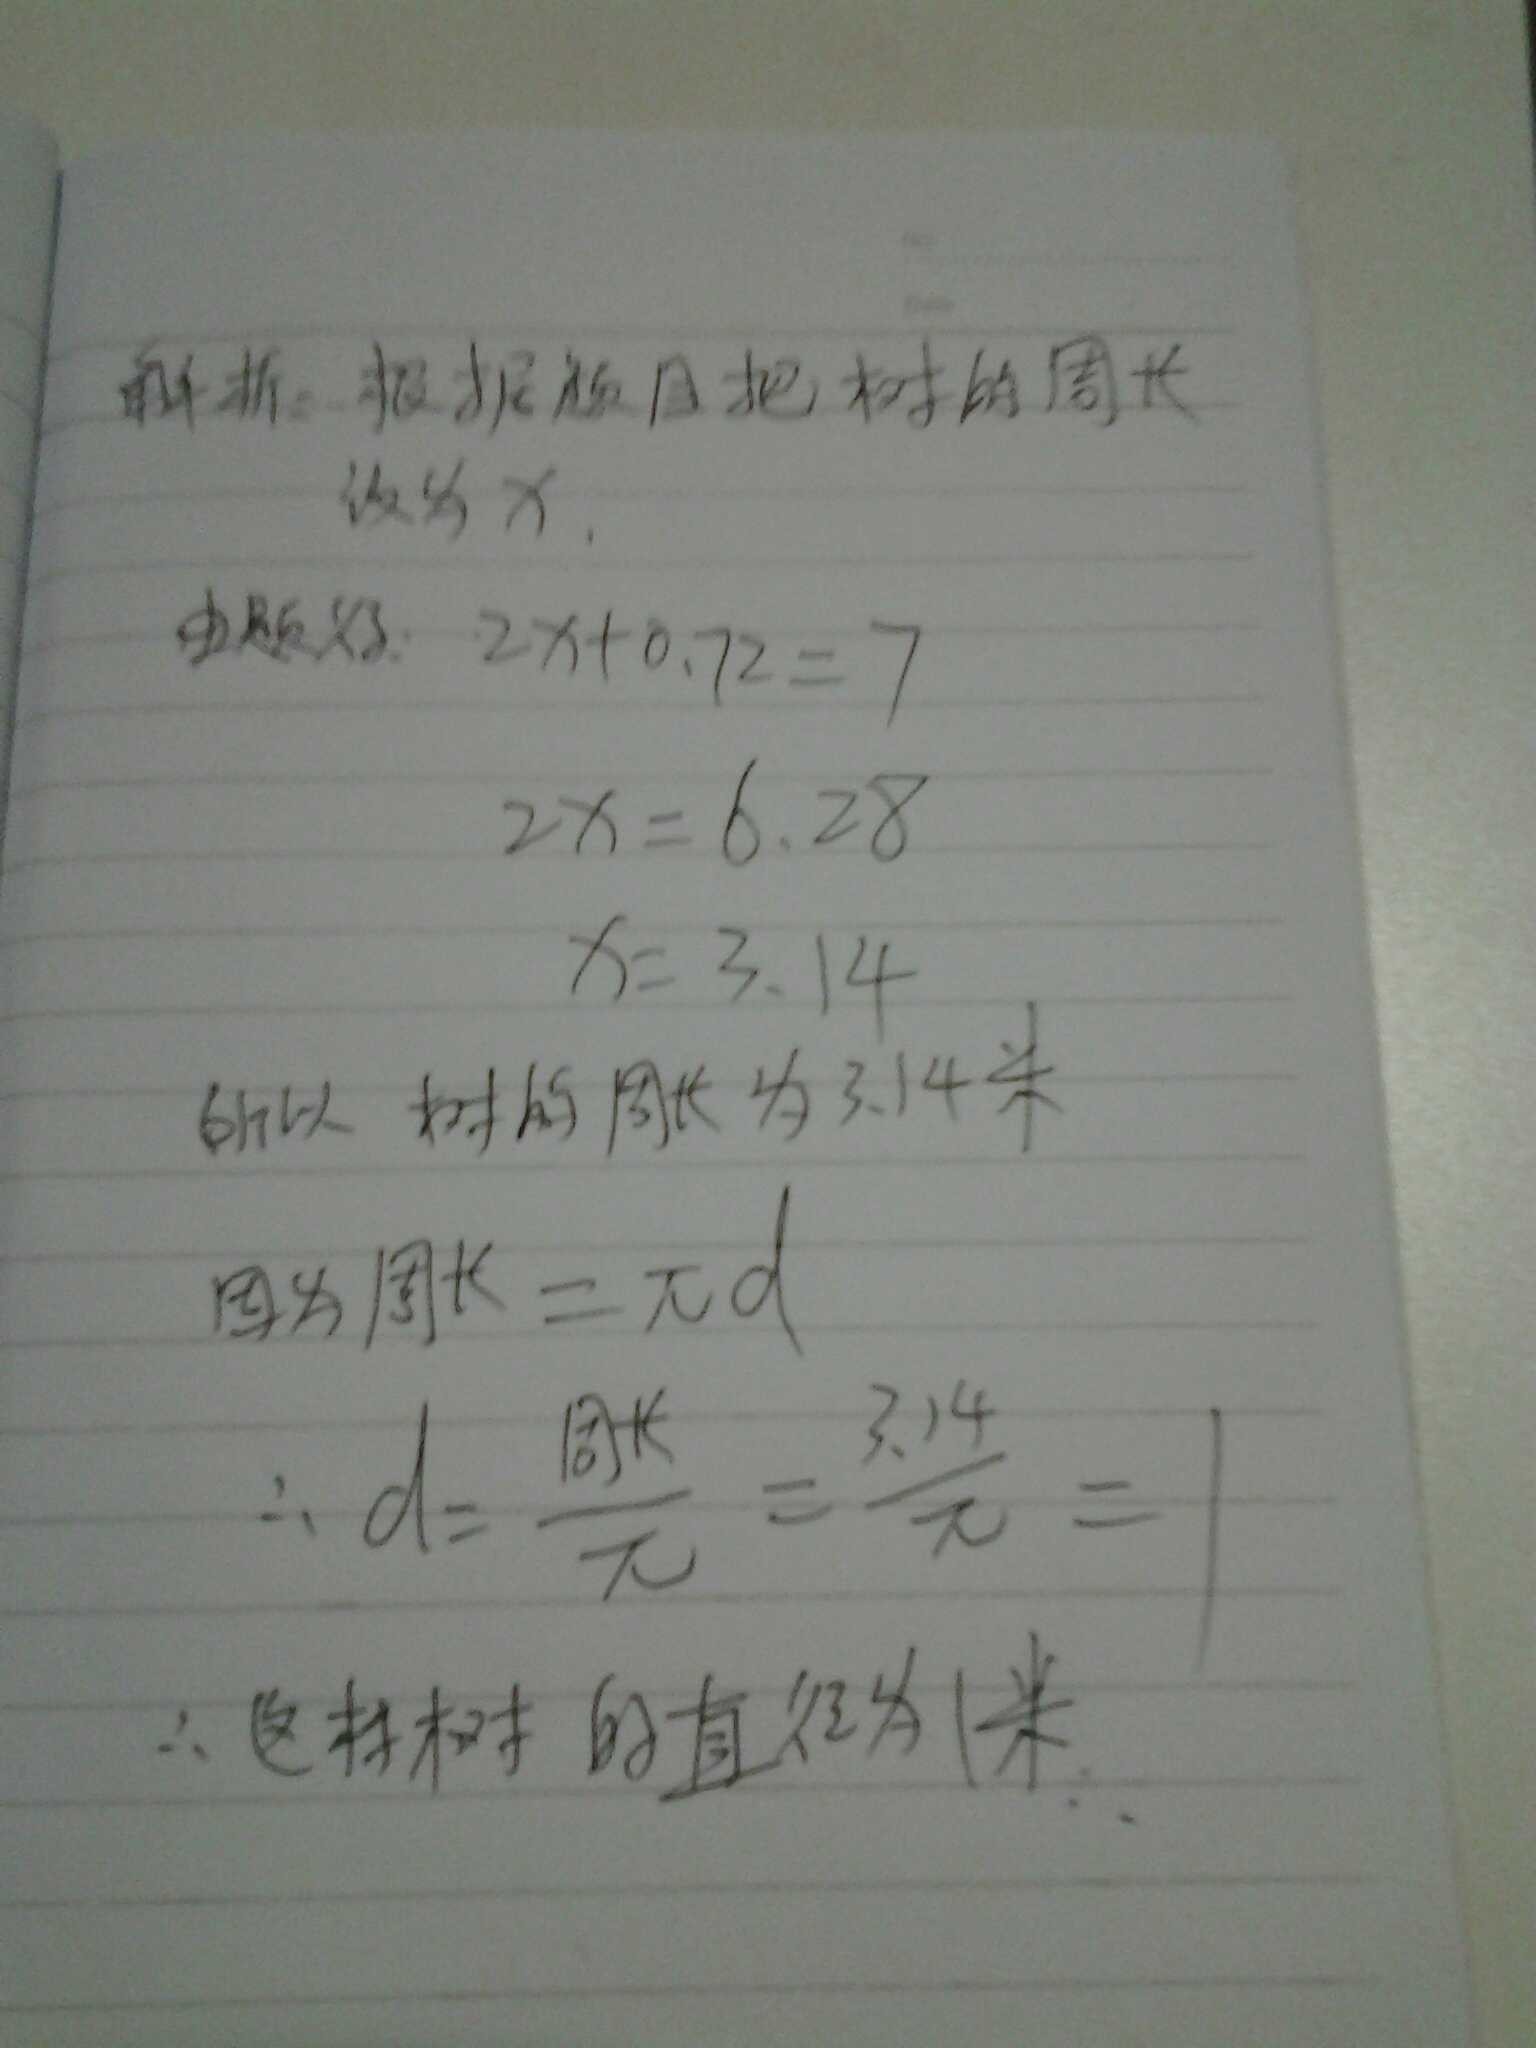 No.
Date
解析：根据题目把树的周长
设为x.
由题义得：2x+0.72=7
2x=6.28
x=3.14
所以 树的周长为3.14米
因为周长=πd
∴d=周长/π=3.14/π=1
∴这样树的直径为1米.